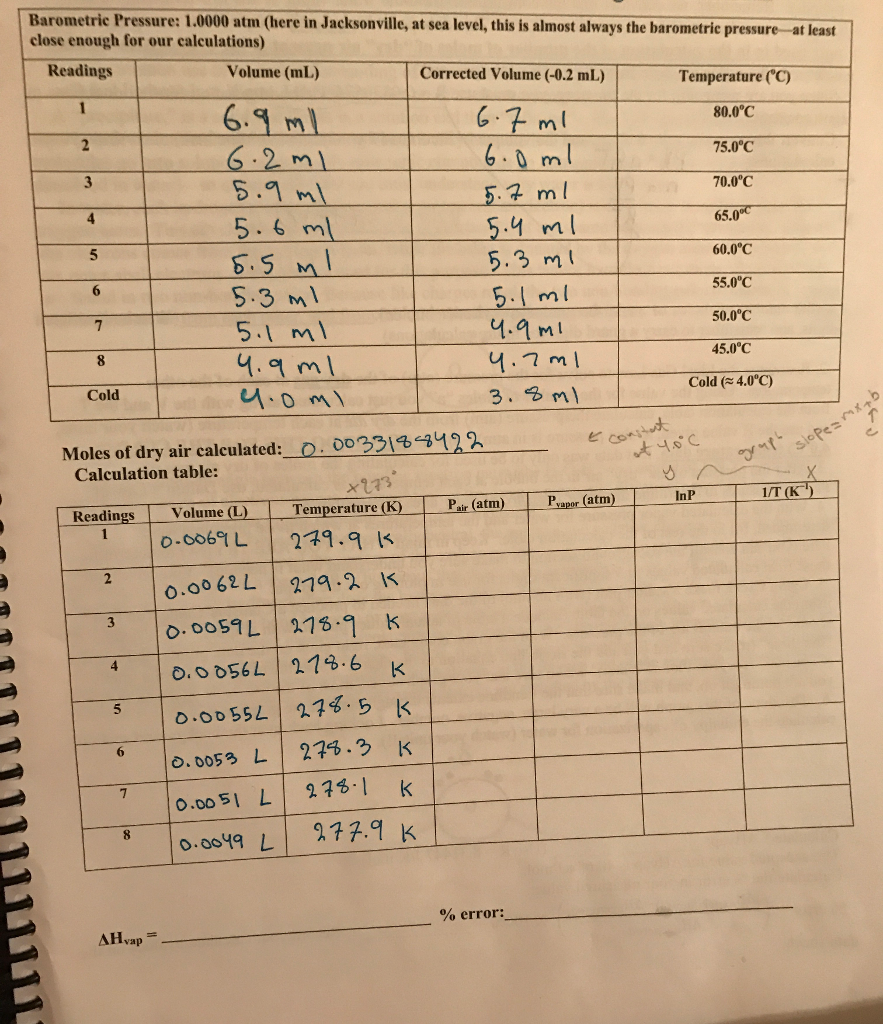 Barometric Pressure: 1.0000 atm (here in Jacksonville, at sea level, this is almost always the barometric pressure—at least
close enough for our calculations)
Readings Volume (mL) Corrected Volume (-0.2 mL) Temperature (°C)
1 6.9 ml 6.7 ml 80.0°C
2 6.2 ml 6.0 ml 75.0°C
3 5.9 ml 5.7 ml 70.0°C
4 5.6 ml 5.4 ml 65.0°C
5 5.5 ml 5.3 ml 60.0°C
6 5.3 ml 5.1 ml 55.0°C
7 5.1 ml 4.9 ml 50.0°C
8 4.9 ml 4.7 ml 45.0°C
Cold 4.0 ml 3.8 ml Cold (≈ 4.0°C)
Moles of dry air calculated: 0. ← constant at 4.0°C graph slope=mx+b
Calculation table: +273° y x
Readings Volume (L) Temperature (K) Pair (atm) Pvapor (atm) lnP 1/T (K⁻¹)
1 0.0069 L 279.9 K
2 0.0062 L 279.2 K
3 0.0059 L 278.9 K
4 0.0056 L 278.6 K
5 0.0055 L 278.5 K
6 0.0053 L 278.3 K
7 0.0051 L 278.1 K
8 0.0049 L 277.9 K
ΔHvap = % error: